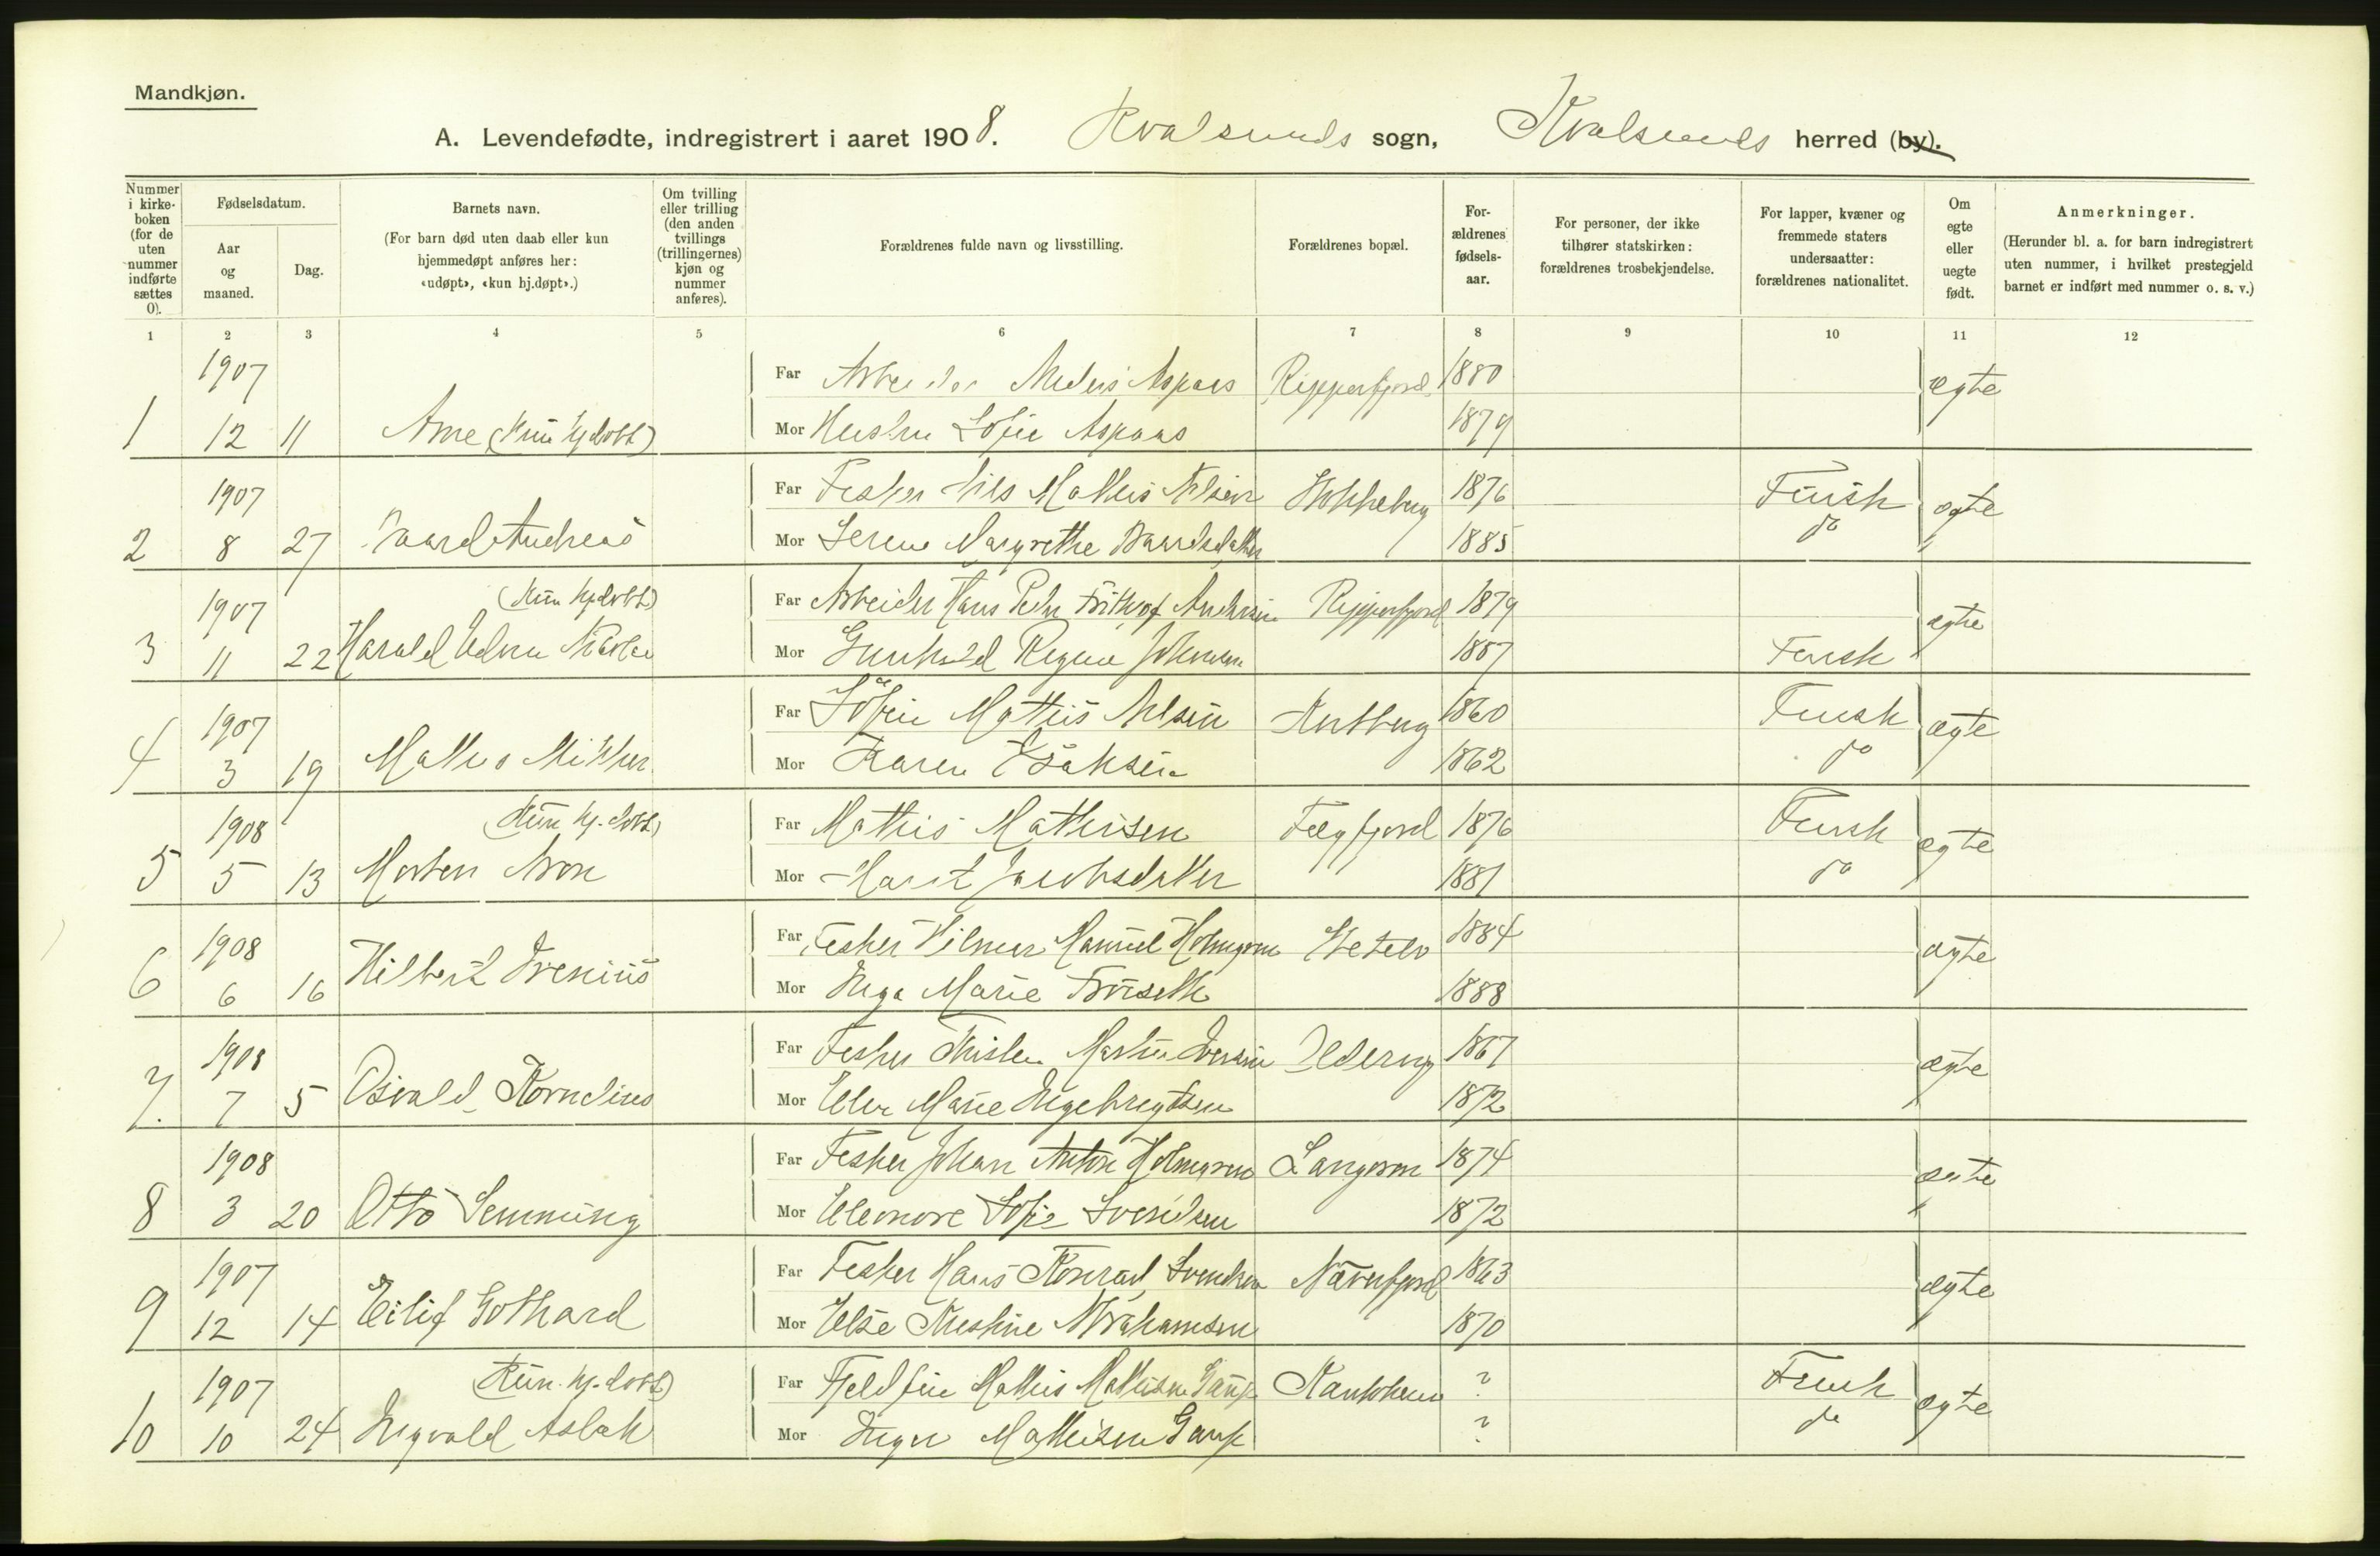 Mandkjøn.
A. Levendefødte, indregistrert i aaret 1908. Kvalsunds sogn, Kvalsunds herred (by).
Nummer i kirke-boken (for de uten nummer indførte sættes 0).
Fødselsdatum.
Aar og maaned.
Dag.
Barnets navn.
(For barn død uten daab eller kun hjemmedøpt anføres her: «udøpt», «kun hj.døpt».)
Om tvilling eller trilling (den anden tvillings (trillingernes) kjøn og nummer anføres).
Forældrenes fulde navn og livsstilling.
Forældrenes bopæl.
For-ældrenes fødsels-aar.
For personer, der ikke tilhører statskirken: forældrenes trosbekjendelse.
For lapper, kvæner og fremmede staters undersaatter: forældrenes nationalitet.
Om egte eller uegte født.
Anmerkninger.
(Herunder bl. a. for barn indregistrert uten nummer, i hvilket prestegjeld barnet er indført med nummer o. s. v.)
1 2 3 4 5 6 7 8 9 10 11 12
1907 Far Arbeider Anders Aspaas Ripperfjord 1880 ægte
1 12 11 Arne (Kun hjdøbt) Mor Hustru Sofie Aspaas 1879
1907 Far Fisker Nils Mathis Nilsen 1876 Finsk ægte
2 8 27 Baard Andreas Mor Serine Margrethe Baardsdatter 1885 do
1907 (Kun hjdøbt) Far Arbeider Hans Peder Frithjof Andersen Ripperfjord 1879 ægte
3 11 22 Harald Mor Gunhild Regine Johansen 1887 Finsk
1907 Far Mathis Nilsen 1860 Finsk ægte
4 3 19 Mathis Mikkel Mor Karen Isaksen 1862 do
1908 (Kun hj. døbt) Far Mathis Mathisen Fægfjord 1876 Finsk ægte
5 5 13 Morten Aron Mor Marit Jacobsdatter 1881 do
1908 Far Fisker Hilmar Manuel Holmgren 1884 ægte
6 6 16 Hilbert Irenius Mor Inga Marie 1888
1908 Far Fisker Martin Iversen 1867 ægte
7. 7 5 Osvald Kornelius Mor Marie Ingebregtsen 1872
1908 Far Fisker Johan Anton Holmgren 1874 ægte
8 3 20 Otto Hemming Mor Eleonore Sofie Svendsen 1872
1907 Far Fisker Hans Konrad Svendsen Næverfjord 1863 ægte
9 12 14 Eilif Gothard Mor Else Kristine Abrahamsen 1870
1907 (Kun hj. døbt) Far Fjeldfin Mathis Mathisen Gaup Kautokeino ? Finsk ægte
10 10 24 Ingvald Aslak Mor Inger Mathisen Gaup ? do